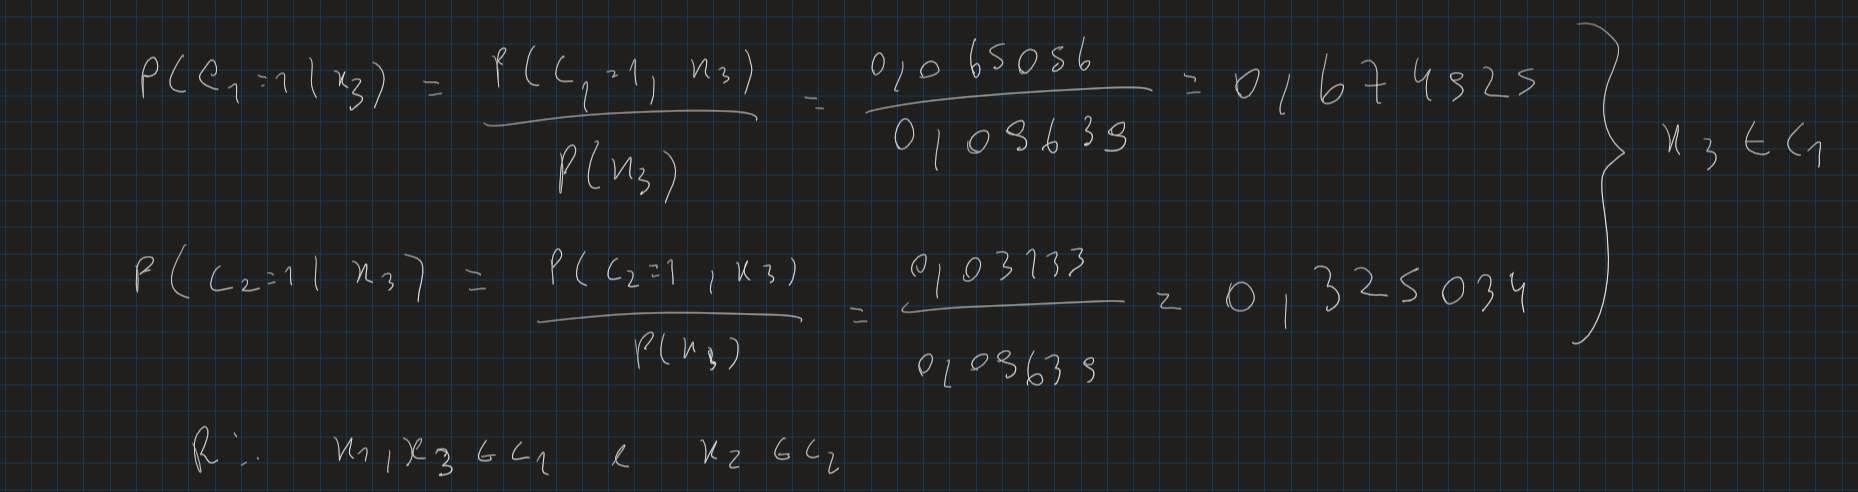 P(C₁=1 | x₃) = P(C₁=1, x₃) / P(x₃) = 0,065056 / 0,09639 = 0,674925 } x₃ ∈ C₁
P(C₂=1 | x₃) = P(C₂=1, x₃) / P(x₃) = 0,03133 / 0,09639 = 0,325034
R:. x₁, x₃ ∈ C₁ e x₂ ∈ C₂